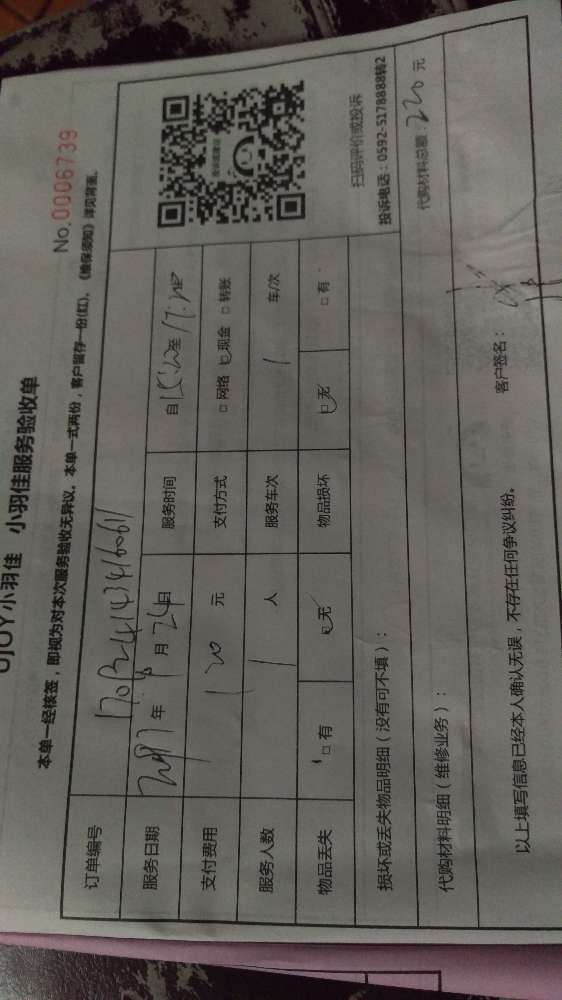 小羽佳 小羽佳服务验收单
No.0006739
本单一经核签，即视为对本次服务验收无异议。本单一式两份，客户留存一份(红)。《维保须知》详见背面。
订单编号
服务日期 年 月 24日 服务时间 自 至
支付费用 120 元 支付方式 □ 网络 □ 现金 □ 转账
服务人数 1 人 服务车次 1 车/次
物品丢失 □ 有 □ 无 物品损坏 □ 无 □ 有
扫码评价或投诉
投诉电话：0592-5178888转2
损坏或丢失物品明细（没有可不填）：
代购材料明细（维修业务）： 代购材料总额：220 元
以上填写信息已经本人确认无误，不存在任何争议纠纷。 客户签名：